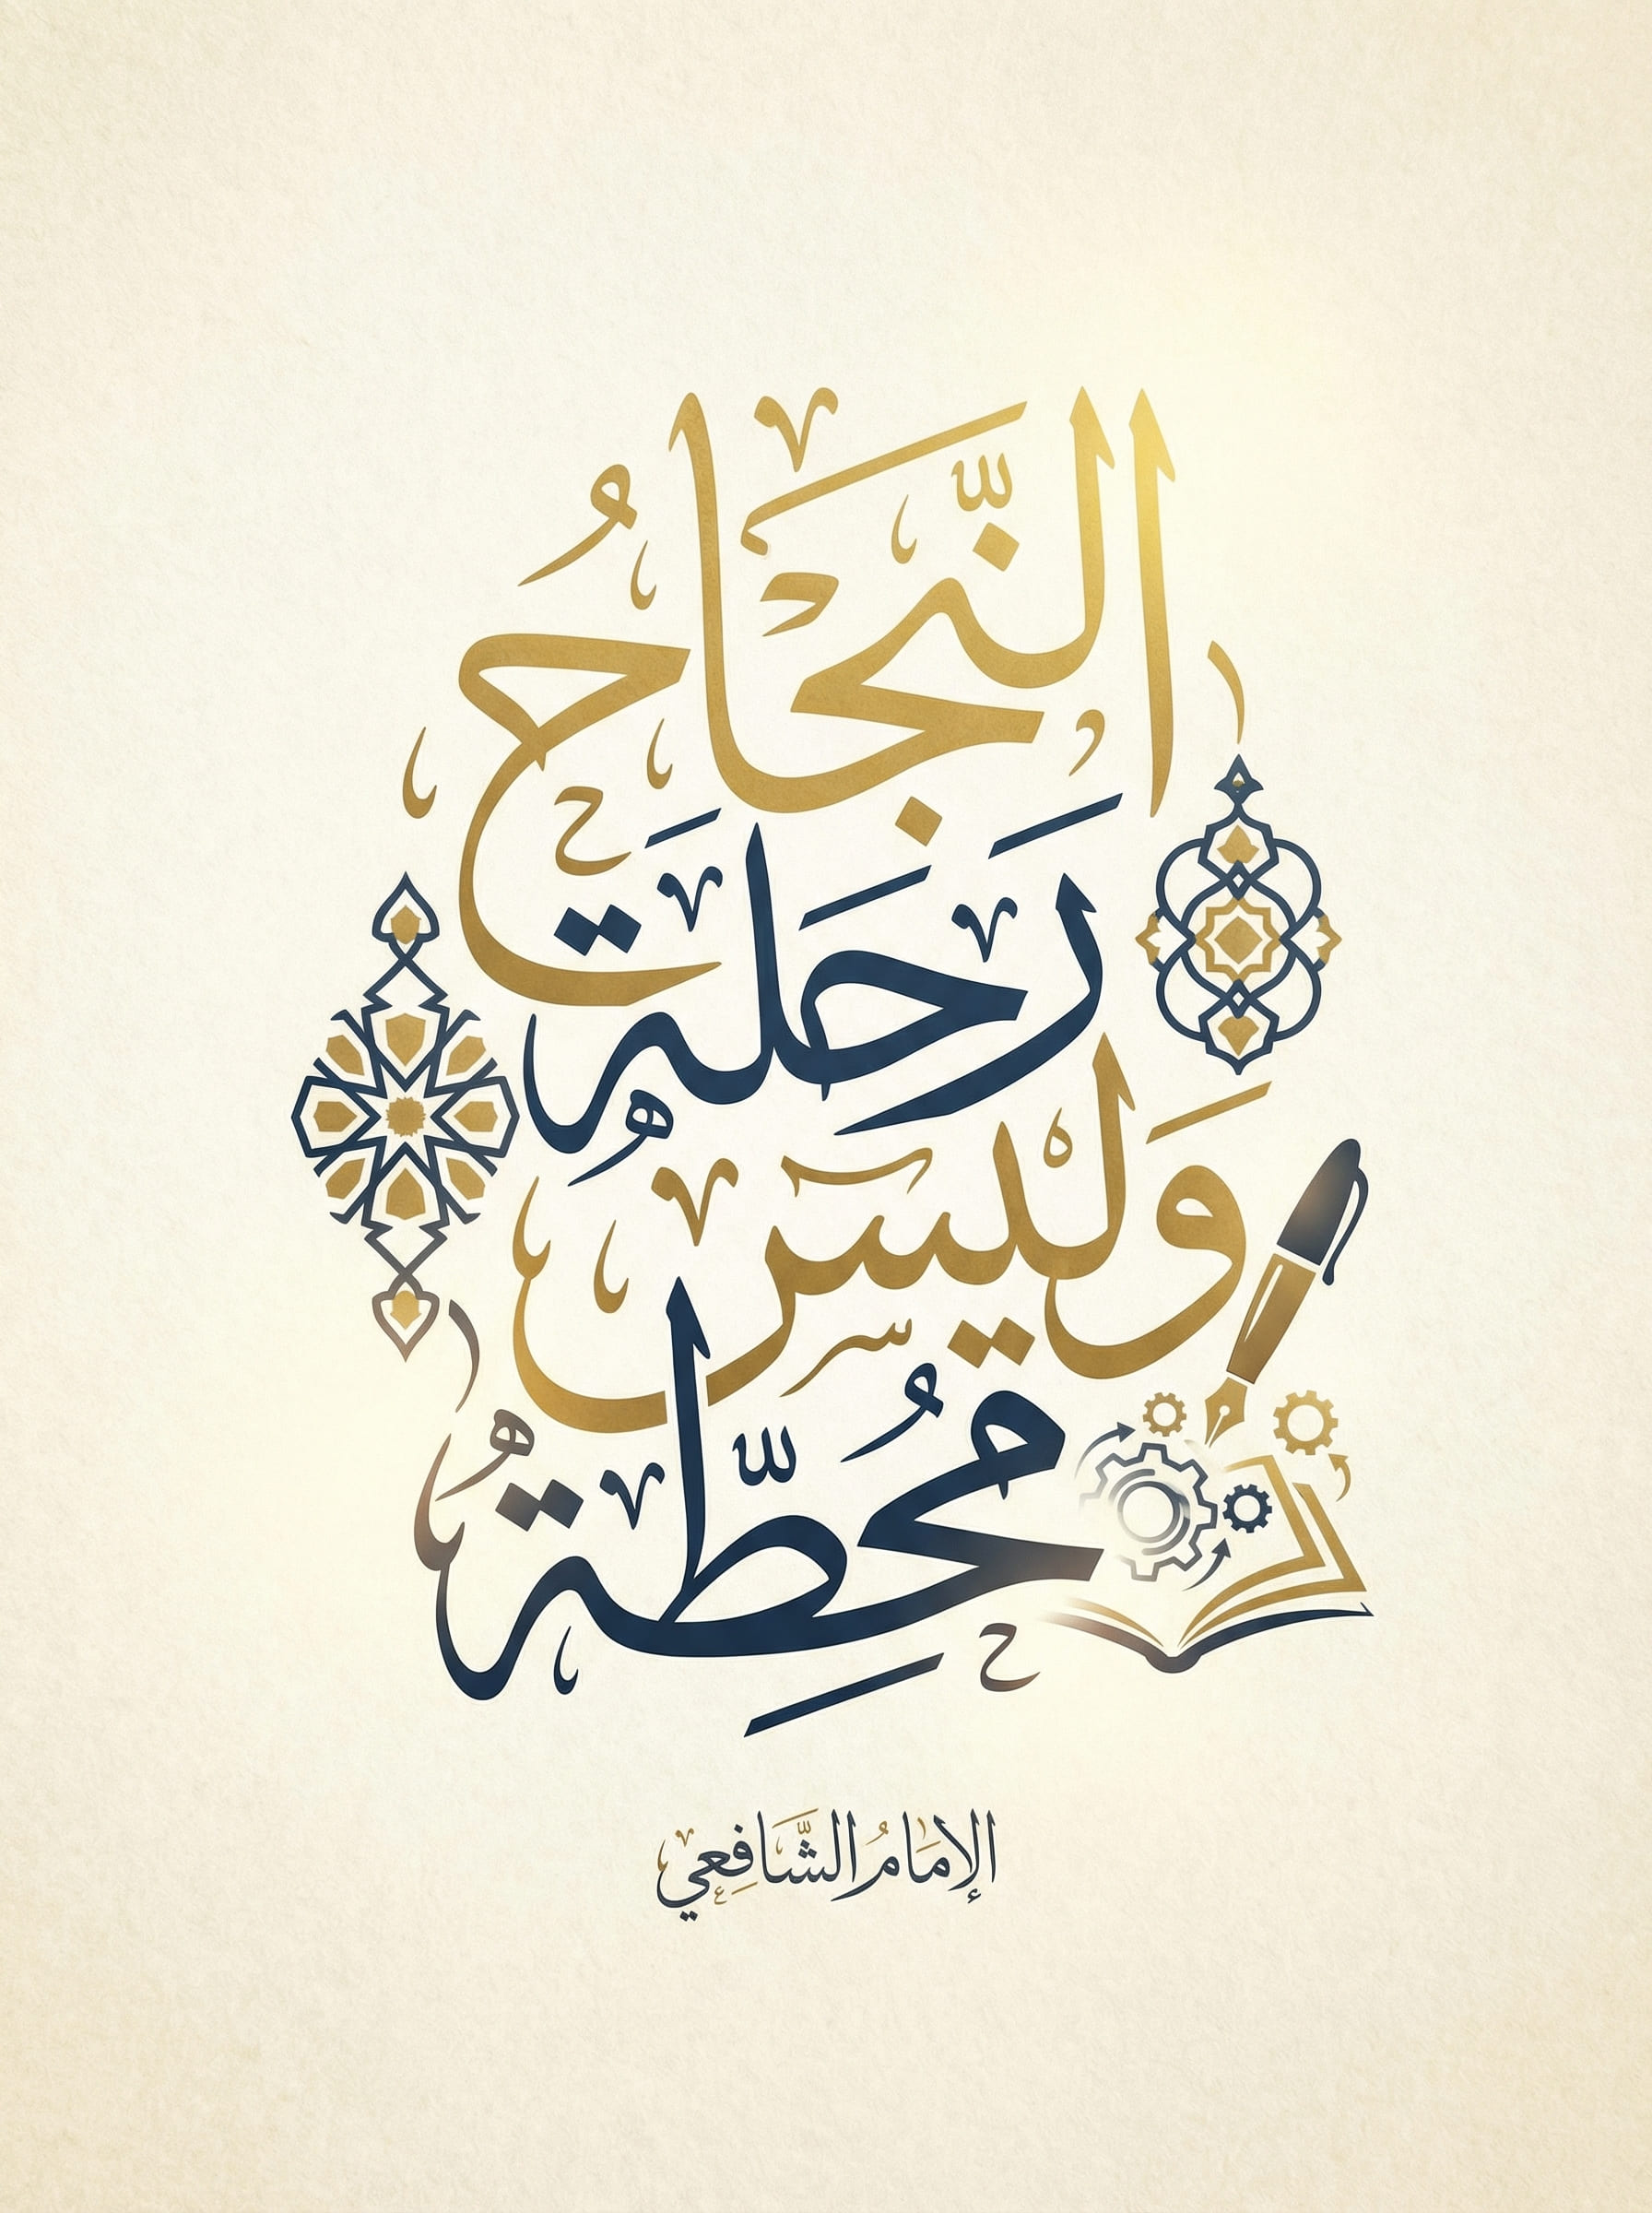 النَّجَاحُ
رَحَلة
وَليسَ
مُحطَّة
الإمَامُ الشَّافِعي